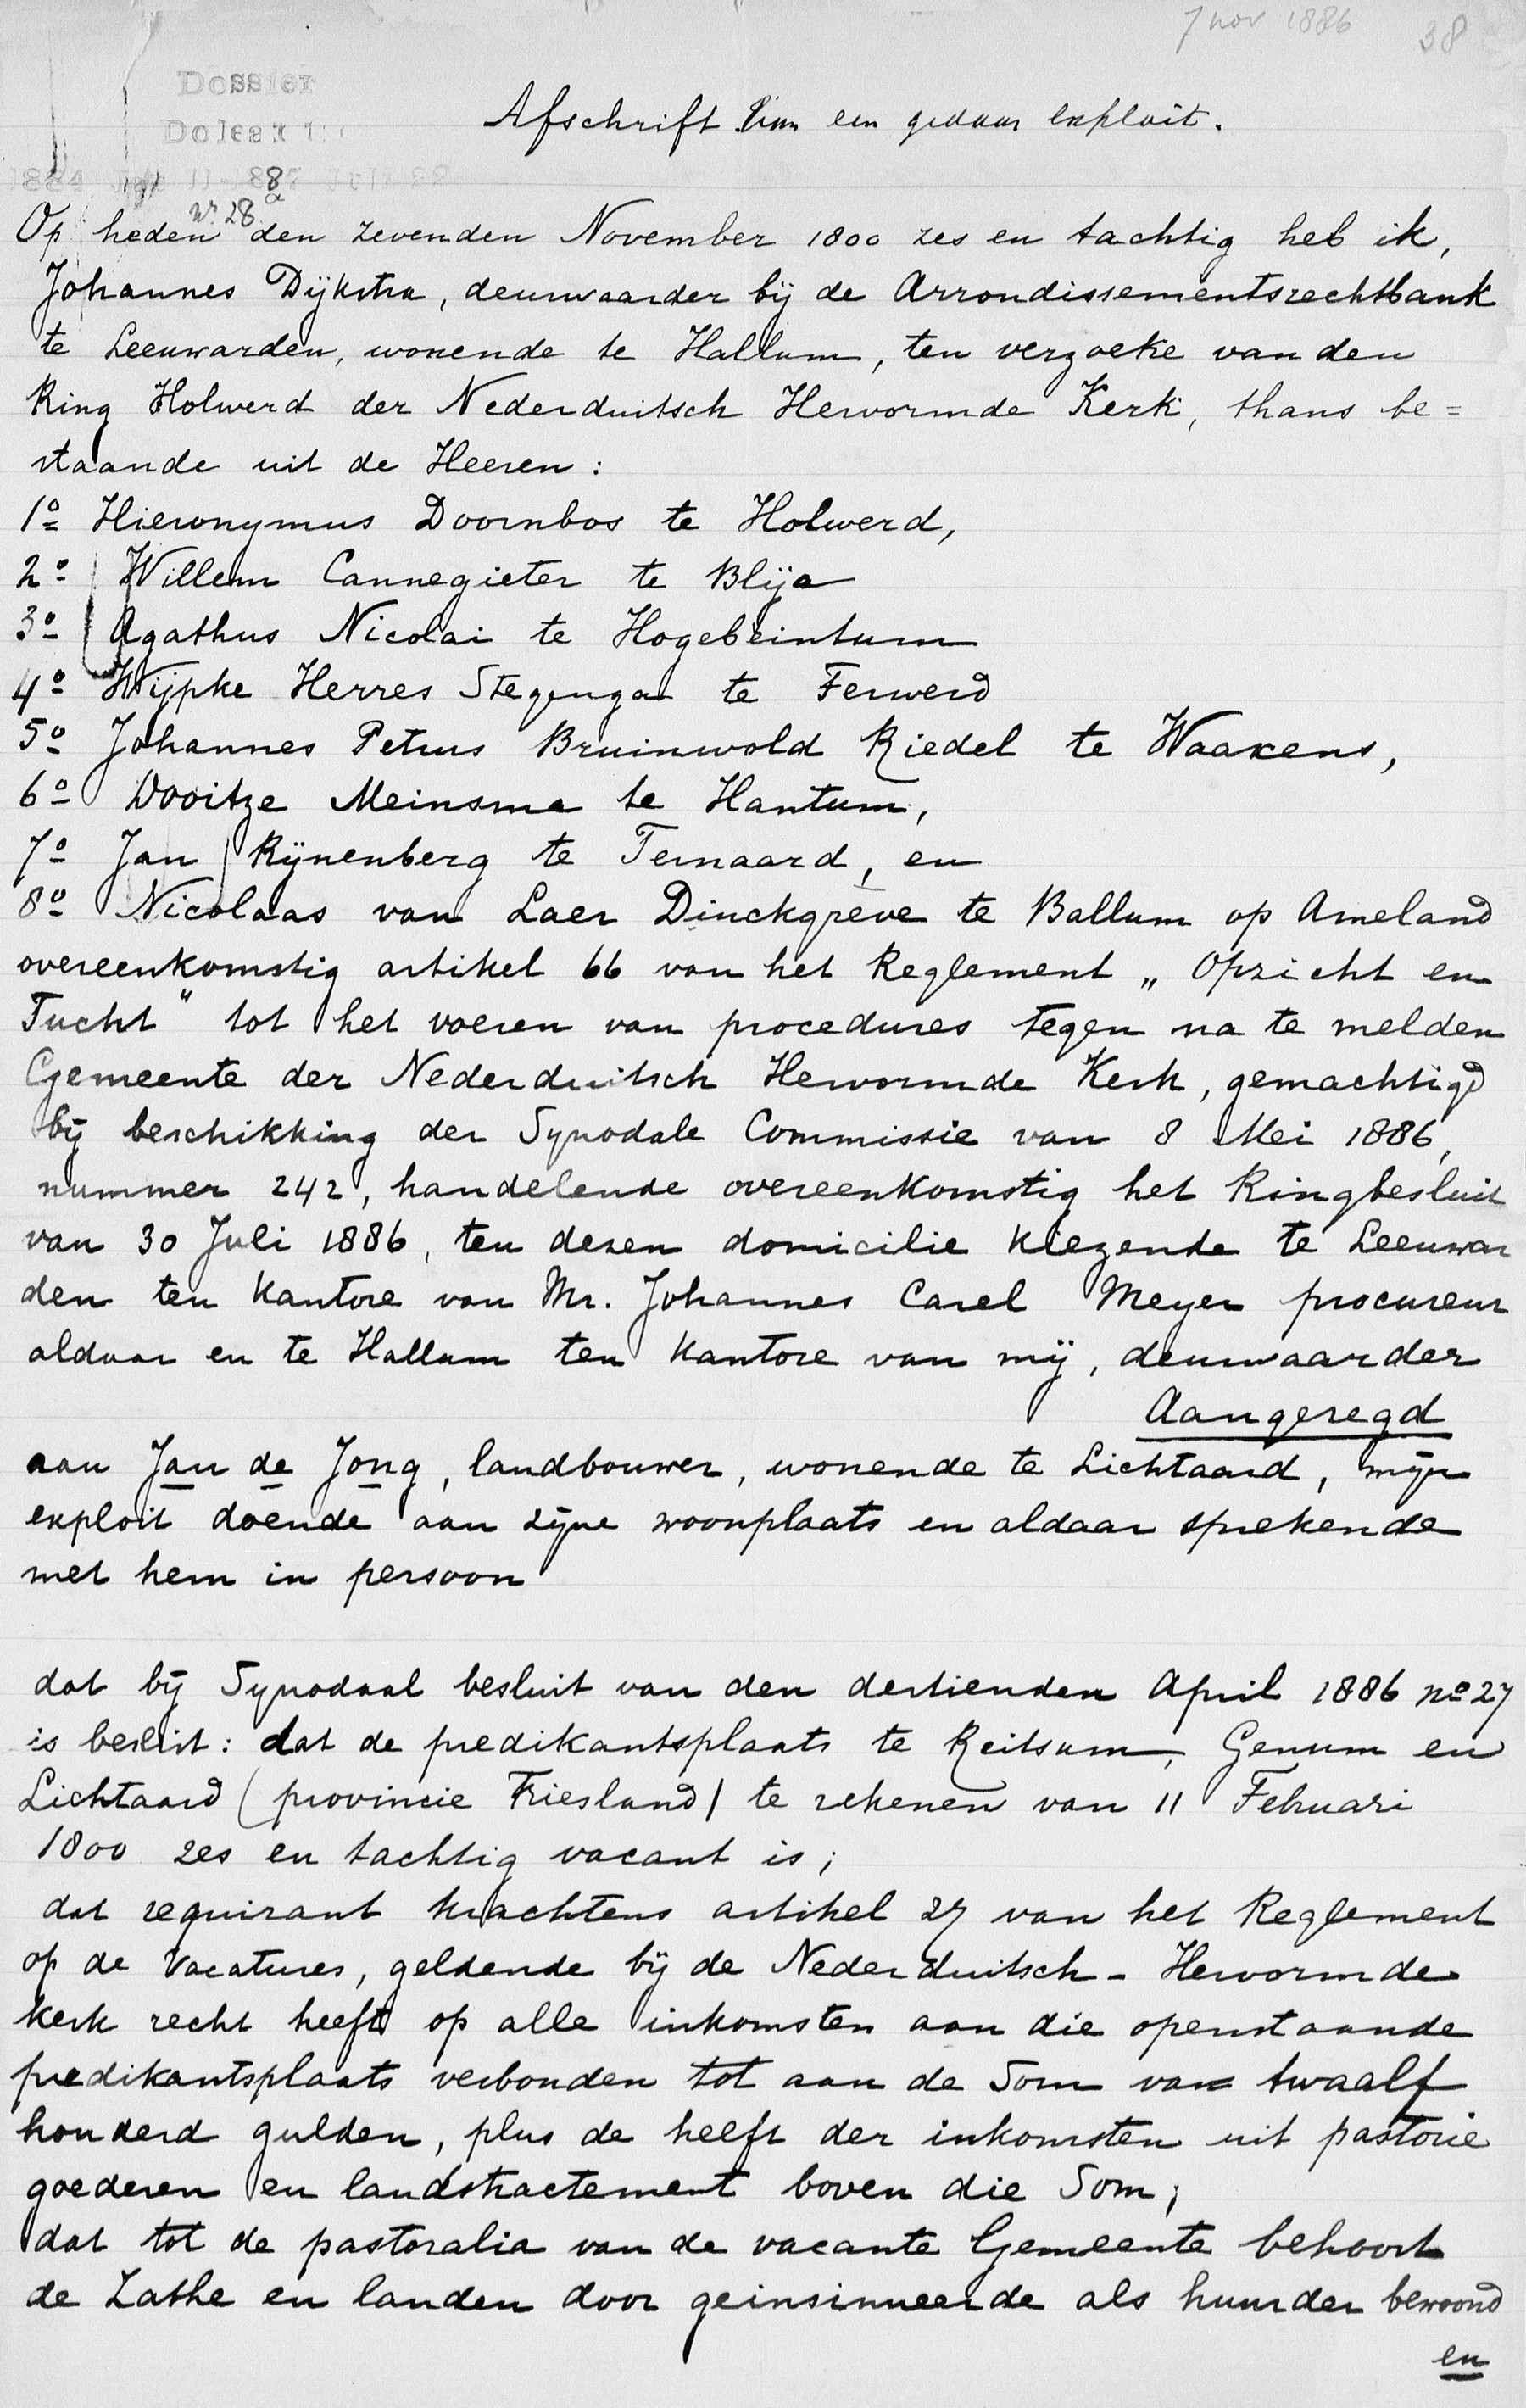 7 nov 1886 38
Dossier
Doleantie
Afschrift van een gedaan exploit.
1884 Juli 11-1887 Juli 22
8
No 28a
Op heden den zevenden November 1800 zes en tachtig heb ik,
Johannes Dijkstra, deurwaarder bij de Arrondissementsrechtbank
te Leeuwarden, wonende te Hallum, ten verzoeke van den
Ring Holwerd der Nederduitsch Hervormde Kerk, thans be=
staande uit de Heeren:
1o Hieronymus Doornbos te Holwerd,
2o Willem Cannegieter te Blija
3o Agathus Nicolai te Hogebeintum
4o Wijpke Herres Stegenga te Ferwerd
5o Johannes Petrus Bruinwold Riedel te Waaxens,
6o Wooitze Meinsma te Hantum,
7o Jan Rijnenberg te Ternaard, en
8o Nicolaas van Laer Dinckgreve te Ballum op Ameland
overeenkomstig artikel 66 van het Reglement „Opzicht en
Tucht" tot het voeren van procedures tegen na te melden
Gemeente der Nederduitsch Hervormde Kerk, gemachtigd
bij beschikking der Synodale Commissie van 8 Mei 1886,
nummer 242, handelende overeenkomstig het Ringbesluit
van 30 Juli 1886, ten dezen domicilie kiezende te Leeuwar
den ten kantore van Mr. Johannes Carel Meyer procureur
aldaar en te Hallum ten kantore van mij, deurwaarder
Aangezegd
aan Jan de Jong, landbouwer, wonende te Lichtaard, mijn
exploit doende aan zijne woonplaats en aldaar sprekende
met hem in persoon
dat bij Synodaal besluit van den dertienden April 1886 no 27
is beslist: dat de predikantsplaats te Reitsum, Genum en
Lichtaard (provincie Friesland) te rekenen van 11 Februari
1800 zes en tachtig vacant is;
dat requirant krachtens artikel 27 van het Reglement
op de Vacatures, geldende bij de Nederduitsch-Hervormde
kerk recht heeft op alle inkomsten aan die openstaande
predikantsplaats verbonden tot aan de Som van twaalf
honderd gulden, plus de helft der inkomsten uit pastorie
goederen en landstractement boven die Som;
dat tot de pastoralia van de vacante Gemeente behoort
de Zathe en landen door geinsinueerde als huurder bewoond
en